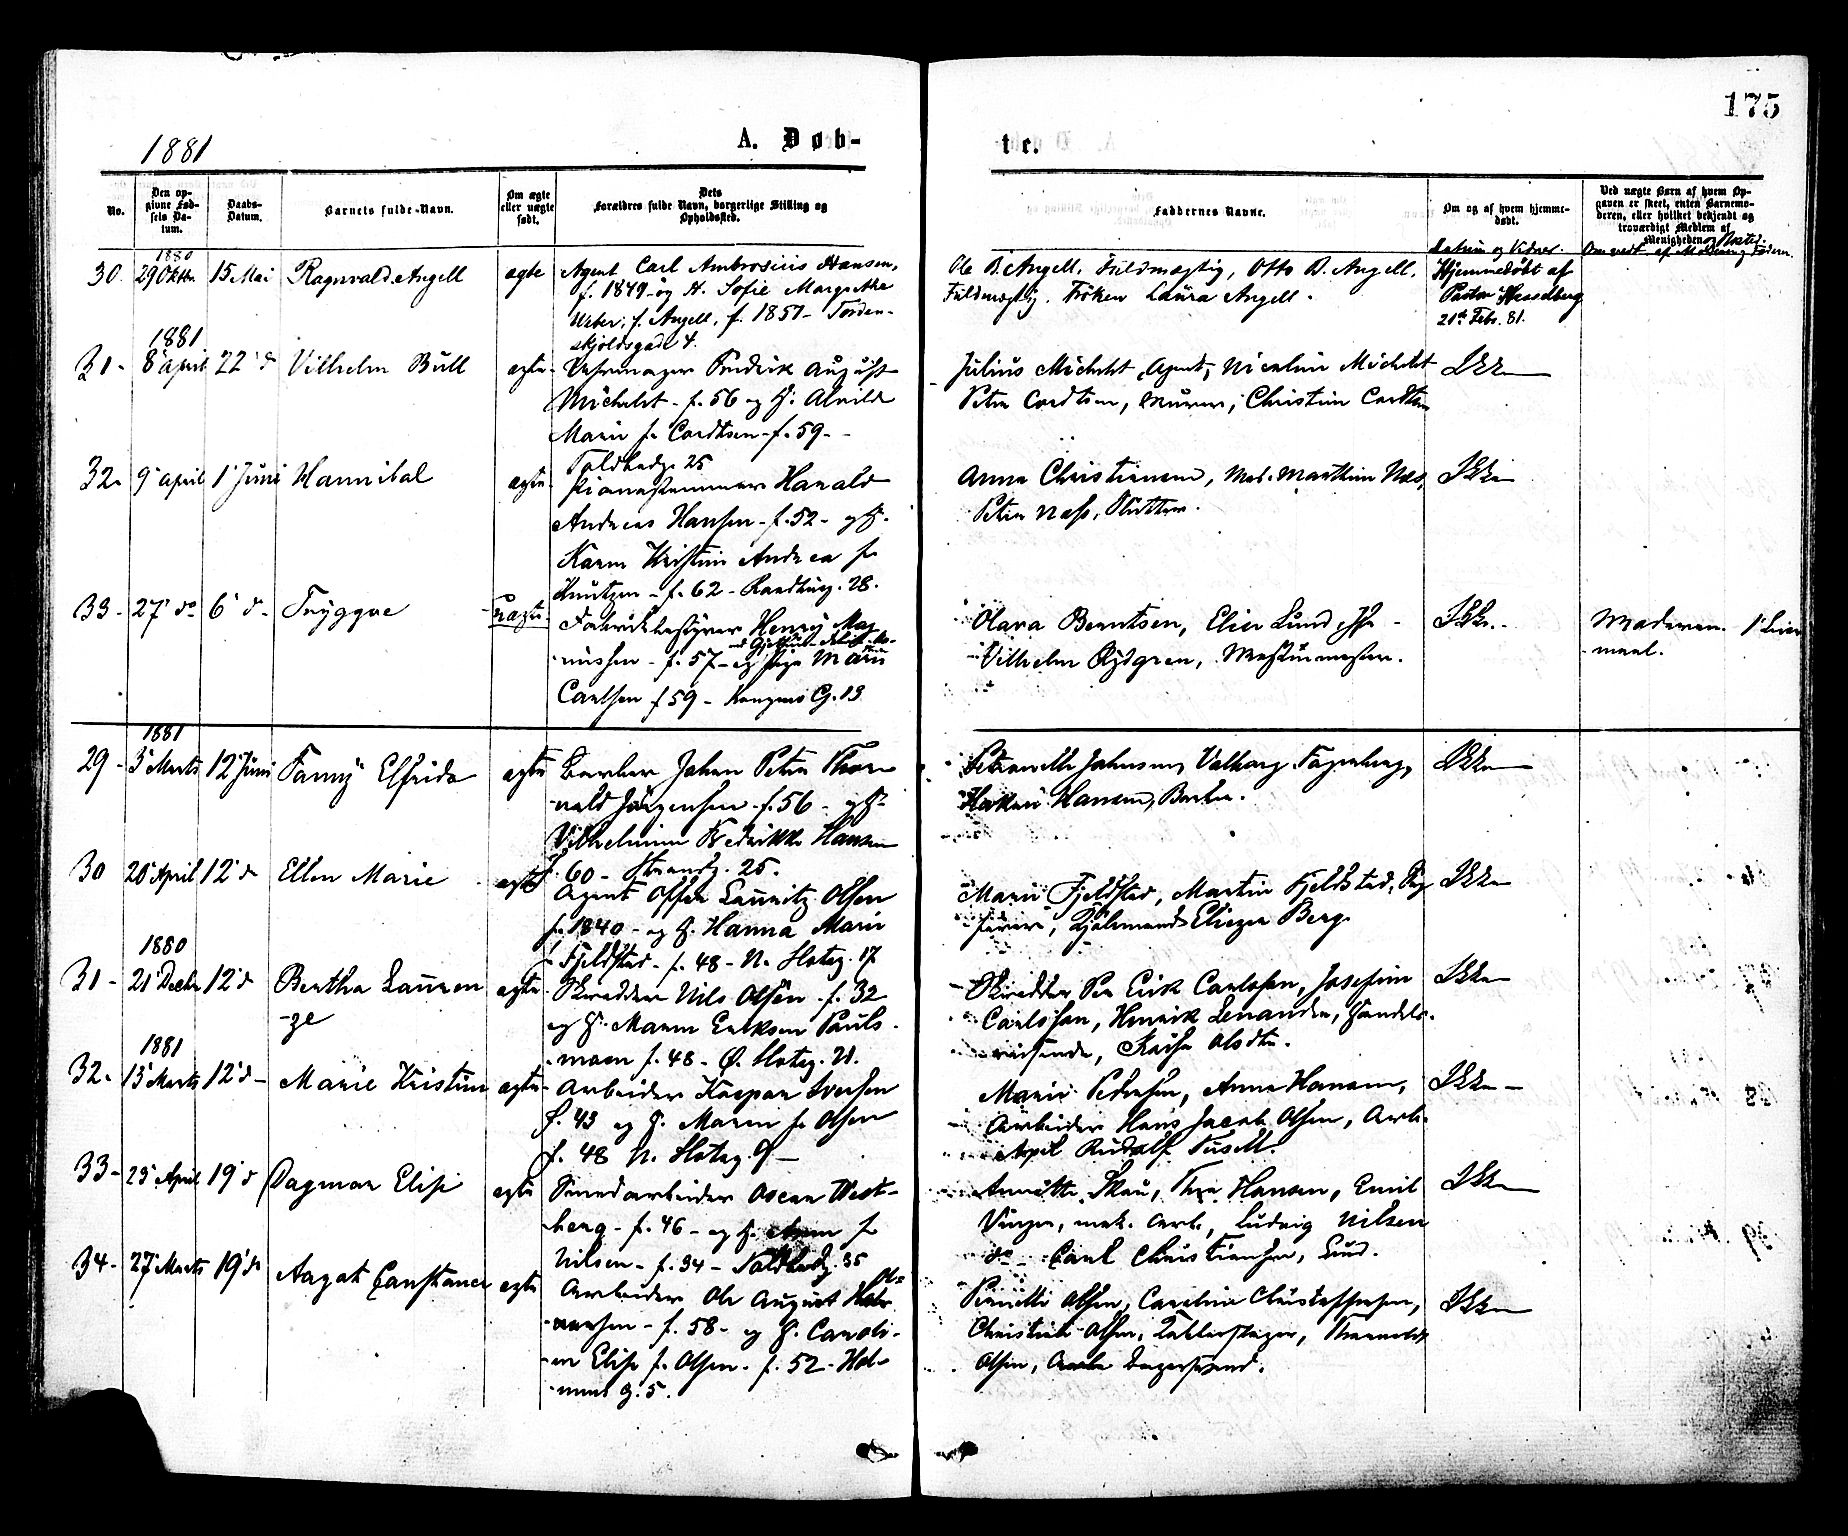 175
1881
A. Døb-
te.
No.
Den op-
givne Fød-
sels Da-
tum.
Daabs-
Datum.
Barnets fulde Navn.
Om ægte
eller uægte
født.
Dets
Forældres fulde Navn, borgerlige Stilling og
Opholdssted.
Faddernes Navne.
Om og af hvem hjemme-
døbt.
Datum og Vidner.
Ved uægte Børn af hvem Op-
gaven er skeet, enten Barnemo-
deren, eller hvilket bekjendt og
troværdigt Medlem af
Menigheden
af Moderen og Faderen
30.
1880
29 Oktbr.
15 Mai
Ragnvald Angell
ægte
Agent Carl Ambrosius Hansen,
f. 1849 og H. Sofie Margrethe
Weber, f. Angell, f. 1851 - Torden-
skjoldsgade 4.
Ole B. Angell, Fuldmægtig, Otto B. Angell,
Fuldmægtig. Frøken Laura Angell.
Hjemmedøbt af
Pastor Hesselberg
21de Febr. 81.
31-
1881
8 april
22 d
Vilhelm Bull
ægte
Fredrik August
Michelet - f. 56 og H. Alvilde
Marie f. Cordtsen - f. 59 -
Toldbodg 25
Julius Michelet, Agent, Nicoline Michelet
Petre Cordtsen, Murer, Christine Cordtsen
Ikke
32.
9 april
1 Juni
Hannibal
ægte
Pianostemmer Harald
Andreas Hansen - f. 52 - og H.
Karen Kristine Andrea f.
Knutzen - f. 62 - Raadhusg. 28.
Anna Christiansen, Mat. Marthin Næs,
Peter Næss,
Ikke
33-
27 do
6 d -
Tryggve
uægte
Fabrikbestyrer Henry Mag-
nussen - f. 57 - og Pige Marie
Carlsen f 59 - Kongens G. 13
Olava Berntsen, Elise Lund
Vilhelm Rydgren, Maskinmester.
Ikke.
Moderen. 1 Leier-
maal.
29-
1881
3 Marts
12 Juni
Fanny Elfrida
ægte
Barber Johan Peter Thor-
vald Jørgensen - f. 56 - og H.
Vilhelmine Fredrikke Hansen
f. 60 - Strandg. 25.
Petronelle Johnsen, Valborg Fagerberg,
Haken Hansen, Barber.
Ikke
30
20 April
12 d
Ellen Marie
ægte
Agent Offer Laurits Olsen
f. 1840 - og H. Hanna Marie
f. Fjeldstad - f. 48 - N. Slotsg. 17
Marie Fjeldstad, Martin Fjeldstad,
Kjøbmand Eliezer Berg
Ikke
31-
1880
21 Decbr
12 d
Bertha Lauren-
ze
ægte
Skrædder Nils Olsen - f. 32
og H. Maren Eriksen Pauls-
moen f. 48 - Ø. Slotsg. 21.
Skrædder Per Erik Carlssen, Josefine
Carlssen, Henrik Lenander, Handels-
reisende,
Ikke
32.
1881
13 Marts
12 d -
Marie Kristine
ægte
Arbeider Kasper Iversen
f. 43 og H. Maren f. Olsen
f. 48 N. Slotsg. 9 -
Marie Pedersen, Anna Hansen,
Arbeider Hans Jacob Olsen, Arb.
Axel Rudolf
Ikke -
33-
23 April
19 d
Dagmar Elise
ægte
Smedarbeider Oscar West-
berg - f. 46 - og H. f.
Nilsen - f. 34 - Toldbodg. 35
Annette Skau, Thea Hansen, Emil
mek. Arb., Ludvig Nilsen
do Carl Christiansen,
Ikke
34-
27 Marts
19 d
Aagot Constance
ægte
Arbeider Ole August Hal-
vorsen - f. 58 - og H. Caroli-
ne Elise f. Olsen - f. 52 - Hol-
mens g. 5.
Pernette Olsen, Caroline Christoffersen,
Christian Olsen, Thorvald
Olsen,
Ikke